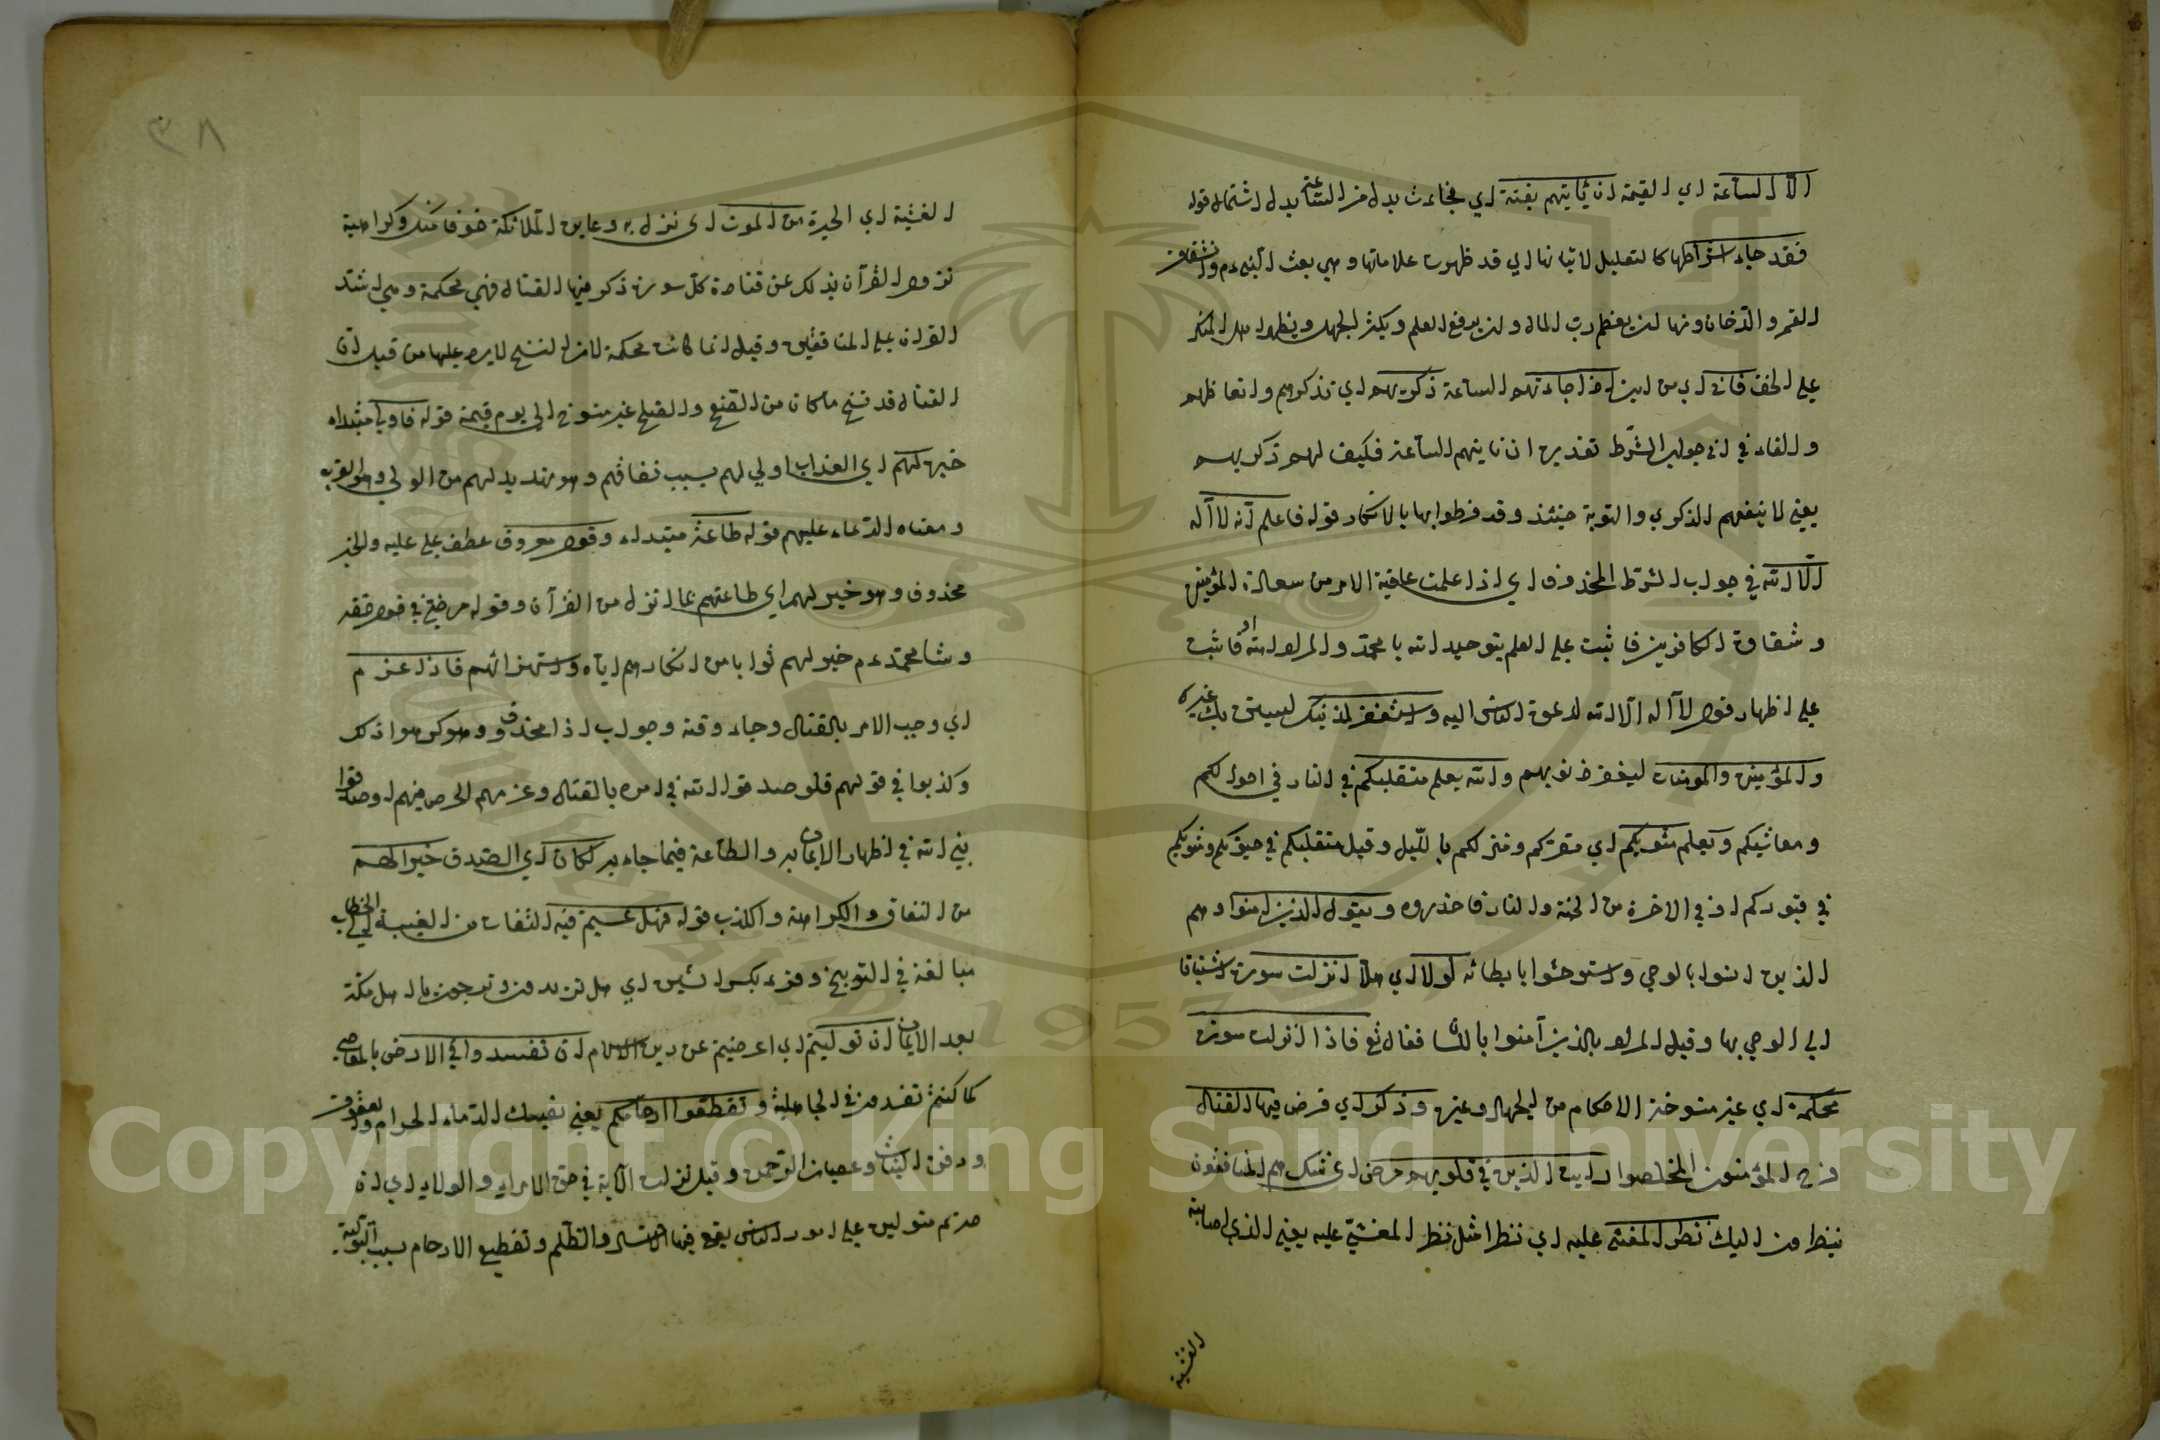 الا الساعة اي القيمة ان تأتيهم بغتة اي فجاءت بدل من الساعة بدل اشتمال قوله
فقد جاء اشراطها كالتعليل لاتيانها اي قد ظهرت علاماتها وهي بعث النبي ءم وانشقاق
القمر والدخان ومنها ان يعظم رب المال وان يرفع العلم ويكثر الجهل ويظهر اهل المنكر
على الحق فانى اي من اين لهم اذا جاءتهم الساعة ذكريهم اي تذكرهم واتعاظهم
والفاء في جواب الشرط تقديره ان تأتيهم الساعة فكيف لهم ذكريهم
يعني لا ينفعهم الذكرى والتوبة حينئذ وقد فرطوا بها بالانكار قوله فاعلم انه لا آله
الا الله في جواب الشرط المحذوف اي اذا علمت عاقبة الامر من سعادة المؤمنين
وشقاوة الكافرين فاثبت على العلم بتوحيد الله يا محمد والمراد امته او فاثبت
على اظهار قول لا آله الا الله لدعوة الناس اليه واستغفر لذنبك ليستن بك غيره
والمؤمنين والمؤمنات ليغفر ذنوبهم والله يعلم متقلبكم في النار في احوالكم
ومعاشيكم ويعلم مثويكم اي مقركم ومنزلكم بالليل وقيل متقلبكم في حيوتكم ومثويكم
في قبوركم او في الاخرة من الجنة والنار فاحذروه ويقول الذين امنوا وهم
الذين امنوا بالوحي واستوحشوا بابطائه لولا اي هلا نزلت سورة اشتياقا
الى الوحي بها وقيل المراد بالذين آمنوا باللسان فقال تع فاذا انزلت سورة
محكمة اي غير منسوخة الاحكام من الجهاد وغيره وذكر اي فرض فيها القتال
فرح المؤمنون المخلصوا رايت الذين في قلوبهم مرض اي شك هم المنافقون
ينظرون اليك نظر المغشي عليه اي نظرا مثل نظر المغشي عليه يعني الذي اصابته
الغشية
٣٨
الغشية اي الحيرة من الموت اي نزل به وعاين الملائكة خوفا منك وكراهية
نزول القرآن بذلك عن قتادة كل سورة ذكر فيها القتال فهي محكمة وهي اشد
القران على المنافقين وقيل انما كانت محكمة لان النسخ لا يرد عليها من قبل ان
القتال قد نسخ ما كان من الصفح والصلح غير منسوخ الى يوم قيمة قوله فاولى مبتداء
خبره لهم اي العذاب اولى لهم بسبب نفاقهم وهو تهديد لهم من الولي وهو القرب
ومعناه الدعاء عليهم قوله طاعة مبتداء وقول معروف عطف على عليه والخبر
محذوف وهو خير لهم اي طاعتهم بما انزل من القرآن وقوله مرضي في قول حقه
وشا محمد ءم خير لهم ثوابا من انكارهم اياه واستهزائهم فاذا عزم
اي وجب الامر بالقتال وجاء وقته وجواب اذا محذوف وهو كرهوا ذلك
وكذبوا في قولهم فلو صدقوا الله في امره بالقتال وعزمهم الحرص منهم او صدقوا
بني الله في اظهار الايمان به والطاعة فيما جاء به لكان اي الصدق خيرا لهم
من النفاق والكراهة والكذب قوله فهل عسيتم فيه التفات من الغيبة الى الخطاب
مبالغة في التوبيخ وقرء بكسر السين اي هل تريدون وترجون يا اهل مكة
بعد الايمان ان توليتم اي اعرضتم عن دين الاسلام ان تفسدوا في الارض بالمعاصي
كما كنتم تفسدون في الجاهلية وتقطعوا ارحامكم يعني بسفك الدماء الحرام وعقوق
ودفن البنات وعصيان الرحمن وقيل نزلت الآية في حق الامراء والولاة اي ان
صرتم متولين على امور الناس يقع فيها الافساد والتظلم وتقطيع الارحام بسبب التولية